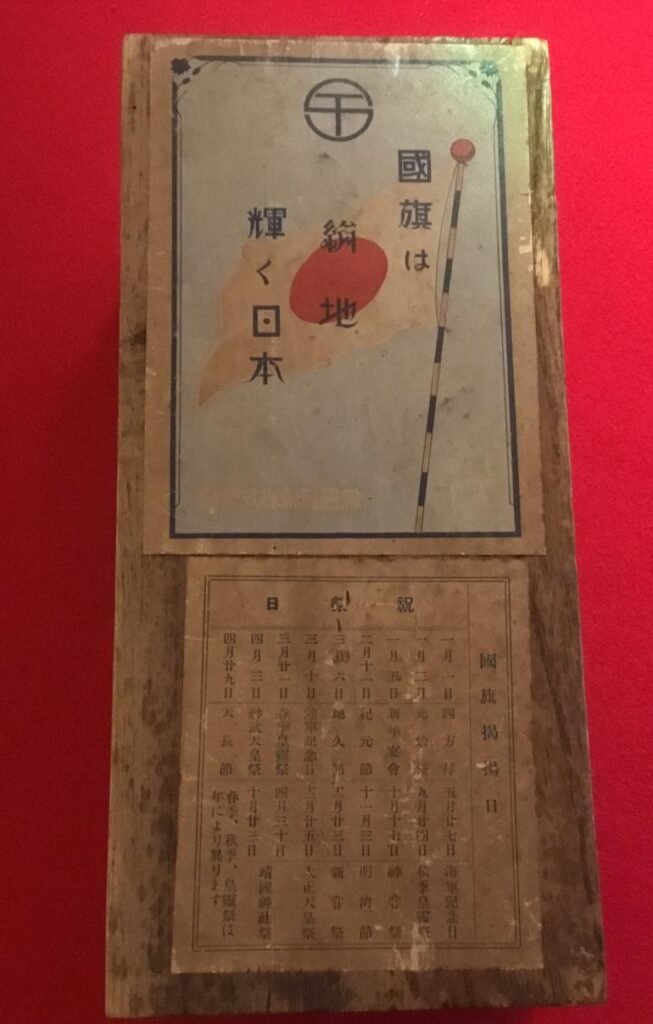 國旗は
絹地
輝く日本
國旗揭揚日
祝祭日
一月一日 四方拜 五月廿七日 海軍記念日
一月三日 元始祭 九月廿四日 秋季皇靈祭
一月五日 新年宴會 十月十七日 神嘗祭
二月十一日 紀元節 十一月三日 明治節
三月六日 地久節 十一月廿三日 新嘗祭
三月十日 陸軍記念日 十二月廿五日 大正天皇祭
三月廿一日 春季皇靈祭 四月三十日
四月三日 神武天皇祭 十月廿三日 靖國神社祭
四月廿九日 天長節
春季、秋季、皇靈祭は
年により異ります